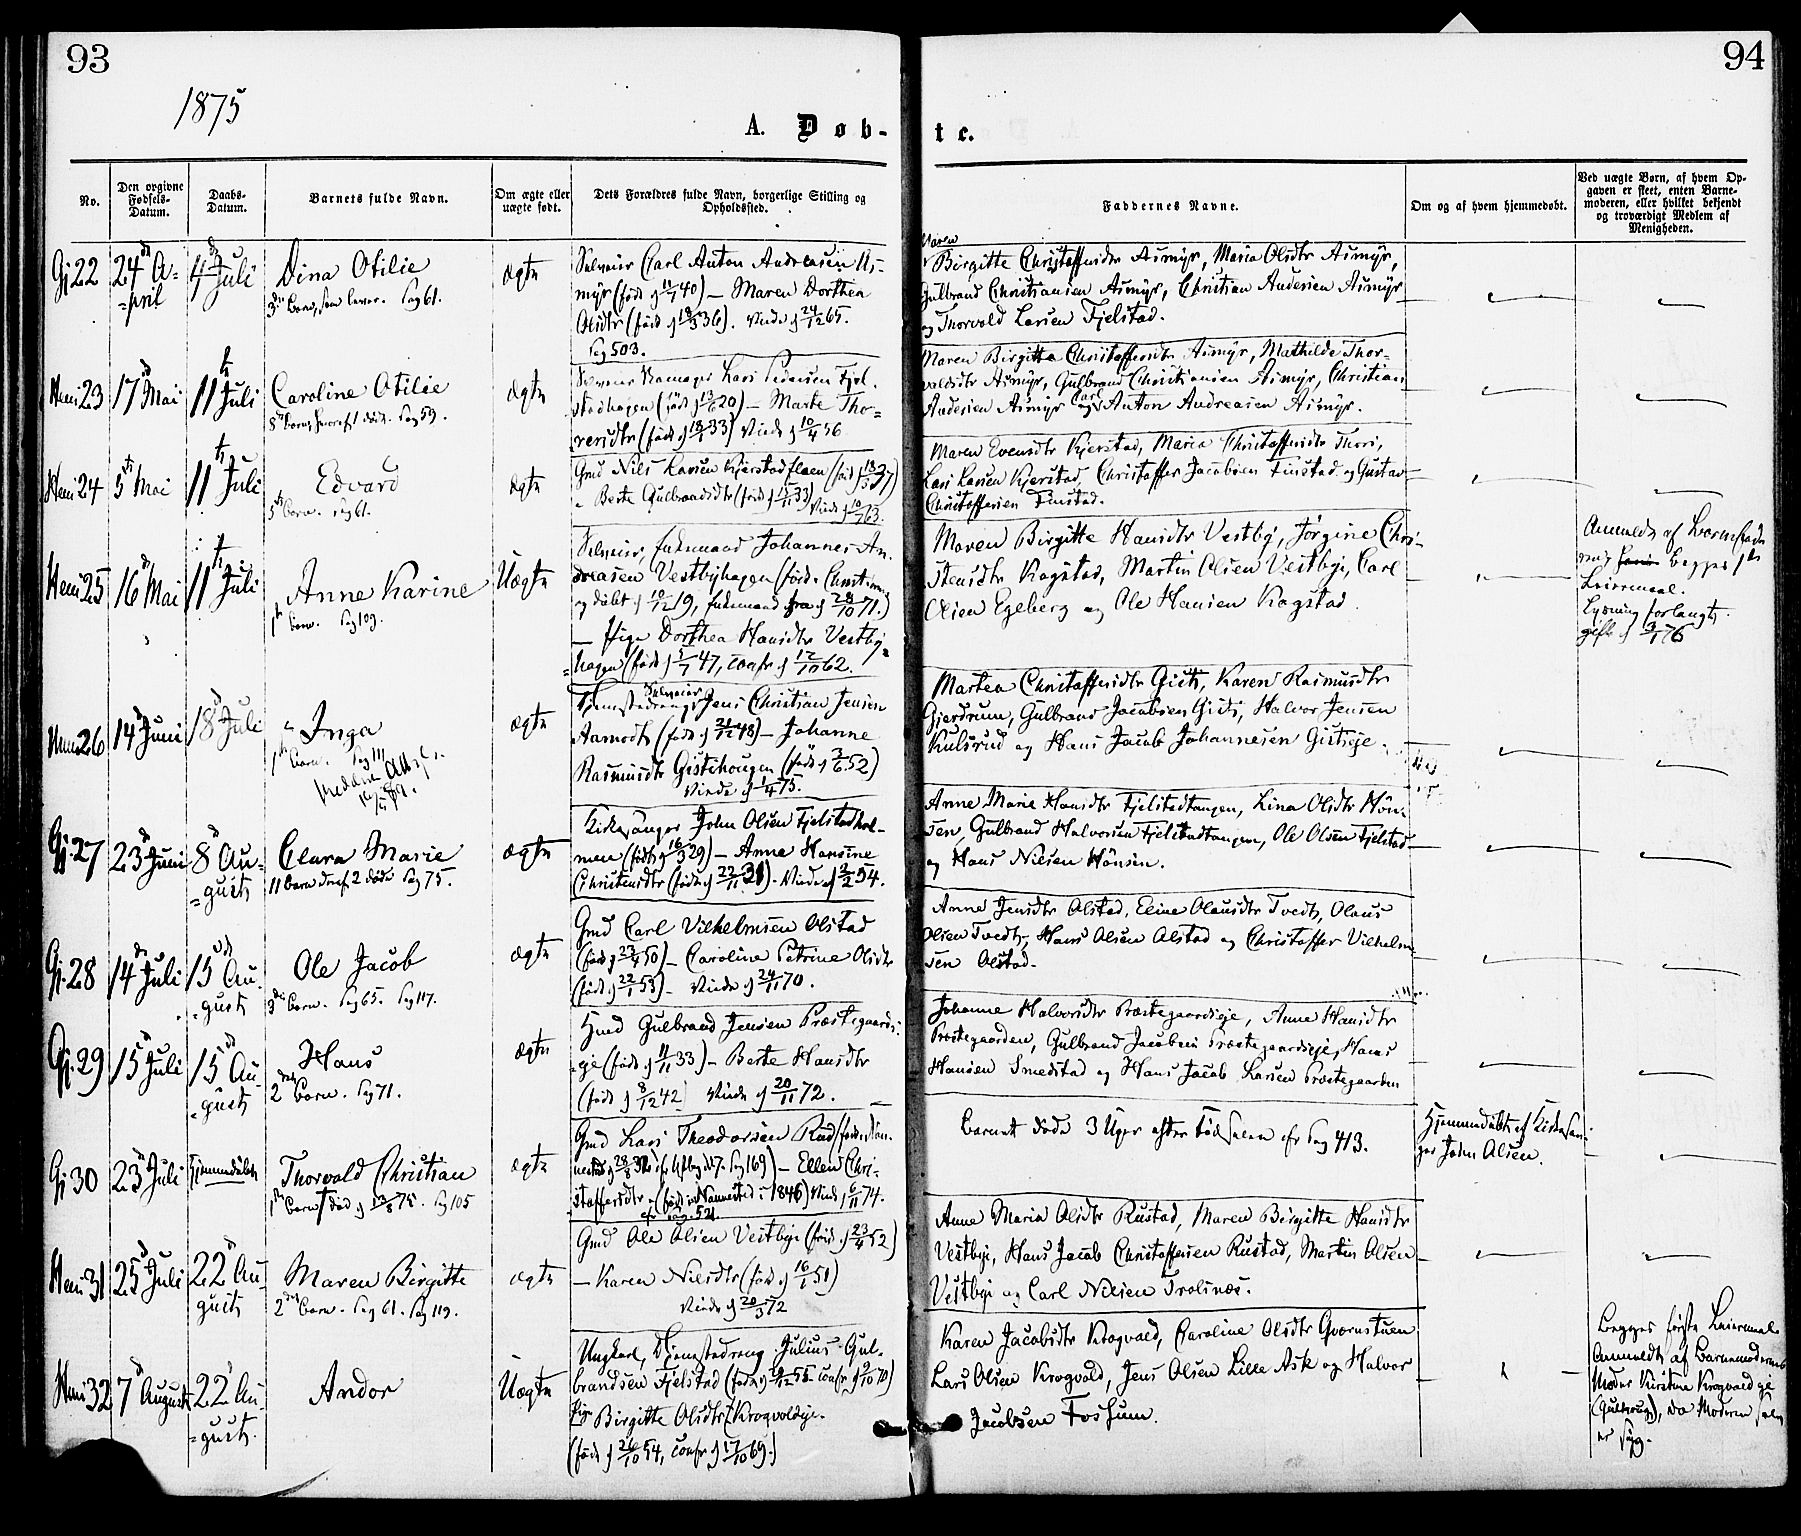 93
94
1875
A. Døb-
te.
No.
Den opgivne Fødsels-Datum.
Daabs-Datum.
Barnets fulde Navn.
Om ægte eller uægte født.
Dets Forældres fulde Navn, borgerlige Stilling og Opholdssted.
Faddernes Navne.
Om og af hvem hjemmedøbt.
Ved uægte Børn, af hvem Op-
gaven er skeet, enten Barne-
moderen, eller hvilket bekjendt
og troværdigt Medlem af
Menigheden.
Gj 22
24de A-
=pril
4de Juli
Dina Otilie
3die Barn, som lever. Pag 61.
ægte
Selveier Carl Anton Andreasen As-
myr (født 11/1 40) — Maren Dorthea
Olsdtr (født 18/3 36). Viede 24/12 65.
Pag 503.
Maren
Birgitte Christoffersdtr Asmyr, Maria Olsdtr Asmyr,
Gulbrand Christiansen Asmyr, Christian Andersen Asmyr
og Thorvald Larsen Fjelstad.
Hem 23
17de Mai
11te Juli
Caroline Otilie
8de Barn, hvoraf 1 død. Pag 59.
ægte
Lars Pedersen Fjel-
stadhagen (født 13/6 20) — Marte Tho-
resdtr (født 18/1 33) Viede 10/4 56
Maren Birgitte Christoffersdtr Asmyr, Mathilde Thor-
valdsdtr Asmyr, Gulbrand Christiansen Asmyr, Christian
Andersen Asmyr og Carl Anton Andreasen Asmyr.
Hem 24
5te Mai
11te Juli
Edvard
5te Barn. Pag 61.
ægte
Gmd Nils Larsen Kjerstad
Berte Gulbrandsdtr
Maren Evensdtr Kjerstad, Maria Christoffersdtr
Lars Larsen Kjerstad, Christoffer Jacobsen Finstad og Gustav
Christoffersen Finstad.
Hem 25
16de Mai
11te Juli
Anne Karine
1ste Barn. Pag 109.
Uægte
Selveier, Enkemand Johannes An-
dreasen Vestbyhagen (født
og døbt 10/12 19, Enkemand fra 28/10 71.)
— Pige Dorthea Hansdtr Vestby-
=hagen (født 5/1 47, conf 12/10 62.
Maren Birgitte Hansdtr Vestby, Jørgine Chri-
stensdtr Kogstad, Martin Olsen Vestbye, Carl
Olsen Egeberg og Ole Hansen Kogstad.
Anmeldt af Barnefade-
ren, begges 1ste
Leiermaal.
Lysning forlangt.
gift
Hem 26
14de Juni
18de Juli
Inga
1ste Barn. Pag 111
ægte
Tjenestedreng Selveier Jens Christian Jensen
Aamodt (født 21/12 48) — Johanne
Rasmusdtr Gistihougen (født 2/6 52)
Viede 1/4 75.
Martea Christoffersdtr Gisti, Karen Rasmusdtr
Gjerdrum, Gulbrand Jacobsen Gisti, Halvor Jensen
Kulsrud og Hans Jacob Johannesen Gistieje.
Gj. 27
23de Juni
8de Au-
=gust
Clara Marie
11 Barn deraf 2 døde Pag 75.
ægte
Kirkesanger John Olsen Fjelstadhol-
men (født 16/3 29) — Anne Hansine
Christensdtr (født 22/11 31). Viede 2/2 54.
Anne Marie Hansdtr Fjelstadtangen, Lina Olsdtr Høn-
sen, Gulbrand Halvorsen Fjelstadtangen, Ole Olsen Fjelstad
og Hans Nilsen Hønsen.
Gj. 28
14de Juli
15de Au-
=gust
Ole Jacob
3die Barn. Pag 65. Pag 117.
ægte
Gmd Carl Vilhelmsen Olstad
(født 23/4 50) — Caroline Petrine Olsdtr
(født 22/1 53) — Viede 24/11 70.
Anne Jensdtr Olstad, Eline Olausdtr Tvedt, Olaus
Olsen Tvedt, Hans Olsen Olstad og Christoffer Vilhelm-
sen Olstad.
Gj. 29
15de Juli
15de Au-
=gust
Hans
2det Barn. Pag 71.
ægte
Hmd Gulbrand Jensen Præstegaards-
eje (født 11/11 33) — Berte Hansdtr
(født 8/12 42) Viede 20/11 72.
Johanne Halvorsdtr Præstegaardseje, Anne Hansdtr
Præstegaarden, Gulbrand Jacobsen Præstegaardseje, Hans
Hansen Smedstad og Hans Jacob Larsen Præstegaarden
Gj 30
23de Juli
Hjemmedøbt
Thorvald Christian
1ste Barn død 13/8 75. Pag 105
ægte
Gmd Lars Theodorsen Rud
Pag 169) — Ellen Chri-
stoffersdtr (født i Nannestad i 1846) Viede 6/11 74.
Pag. 521
Barnet døde 3 Uger efter Fødselen cfr Pag 413.
Hjemmedøbt af Kirkesan-
ger John Olsen.
Hem 31
25de Juli
22de Au-
gust
Maren Birgitte
2det Barn. Pag 61. Pag 119.
ægte
Gmd Ole Olsen Vestbye (født 23/4 52)
— Karen Nilsdtr (født 16/1 51)
Viede 20/3 72
Anne Maria Olsdtr Rustad, Maren Birgitte Hansdtr
Vestbye, Hans Jacob Christoffersen Rustad, Martin Olsen
Vestbye og Carl Nilsen Trolsnes.
Hem 32
7de August
22de Au-
=gust.
Andor
Uægte
Ungkarl, Tjenestedreng Julius Gul-
brandsen Fjelstad
Pige Birgitte Olsdtr Krogvoldeje.
(født 26/10 54, conf 17/10 69.)
Karen Jacobsdtr Krogvold, Caroline Olsdtr Qvernstuen
Lars Olsen Krogvold, Jens Olsen Lille Ask og Halvor
Jacobsen Fossum.
Begges første Leiermaal
Anmeldt af Barnemoderens
Moder Kirstine Krogvold
da Moderen selv
er syg.